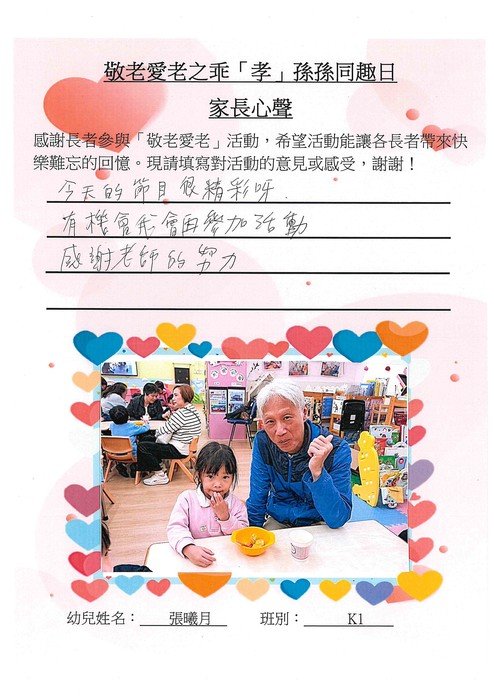 敬老愛老之乖「孝」孫孫同趣日
家長心聲
感謝長者參與「敬老愛老」活動，希望活動能讓各長者帶來快
樂難忘的回憶。現請填寫對活動的意見或感受，謝謝！
今天的節目很精彩呀.
有機會我會再參加活動
感謝老師的努力
幼兒姓名： 張曦月 班別： K1